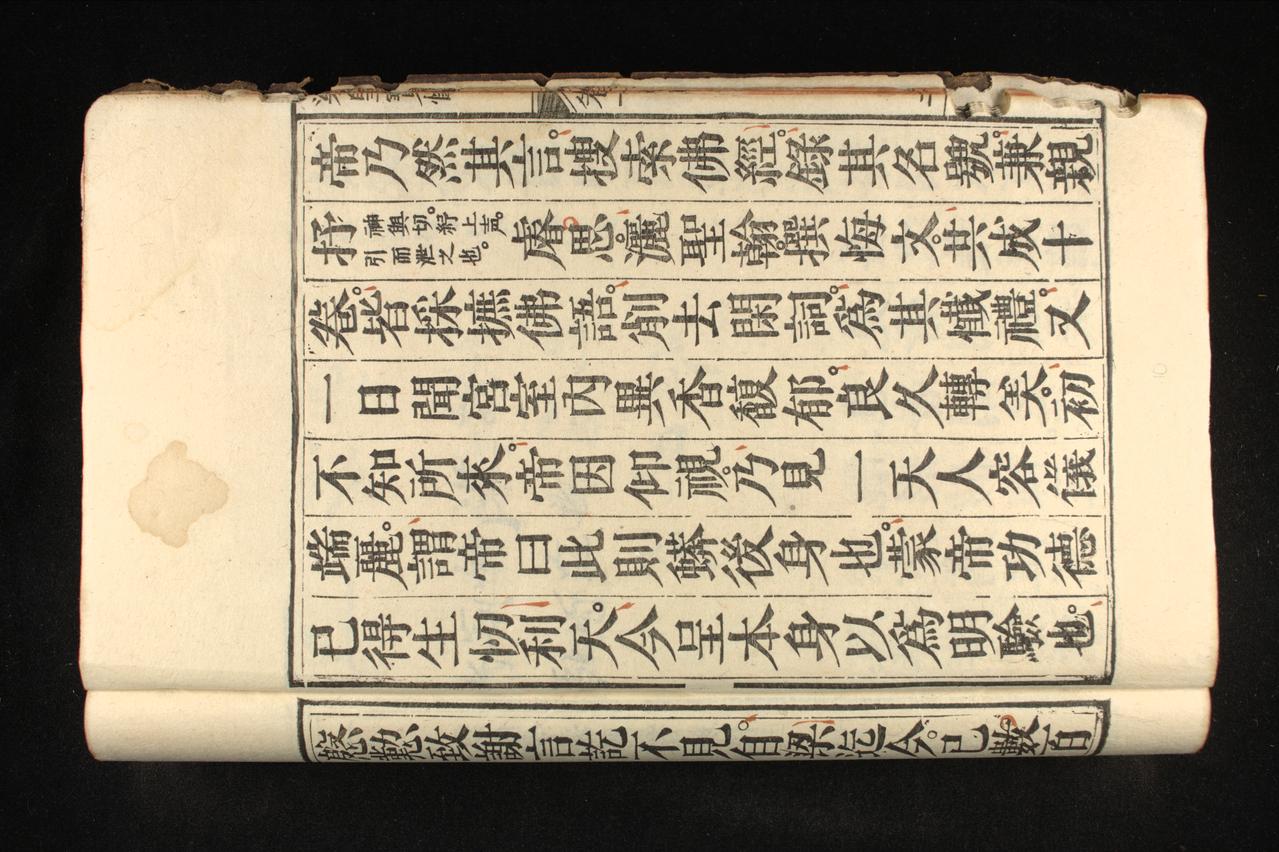 帝乃然其言。搜索佛經。錄其名號。兼親
抒神與切。紓上声。引而泄之也。睿思灑聖翰。撰悔文。共成十
卷。皆採摭佛語。削去閑詞。為其懺禮。又
一日聞宮室內異香馥郁。良久轉美。初
不知所來。帝因仰視。乃見一天人容儀
端麗。謂帝曰此則蟒後身也。蒙帝功德
已得生忉利天。今呈本身以為明驗也。
慇懃致謝言訖不見。自梁迄今。已數百